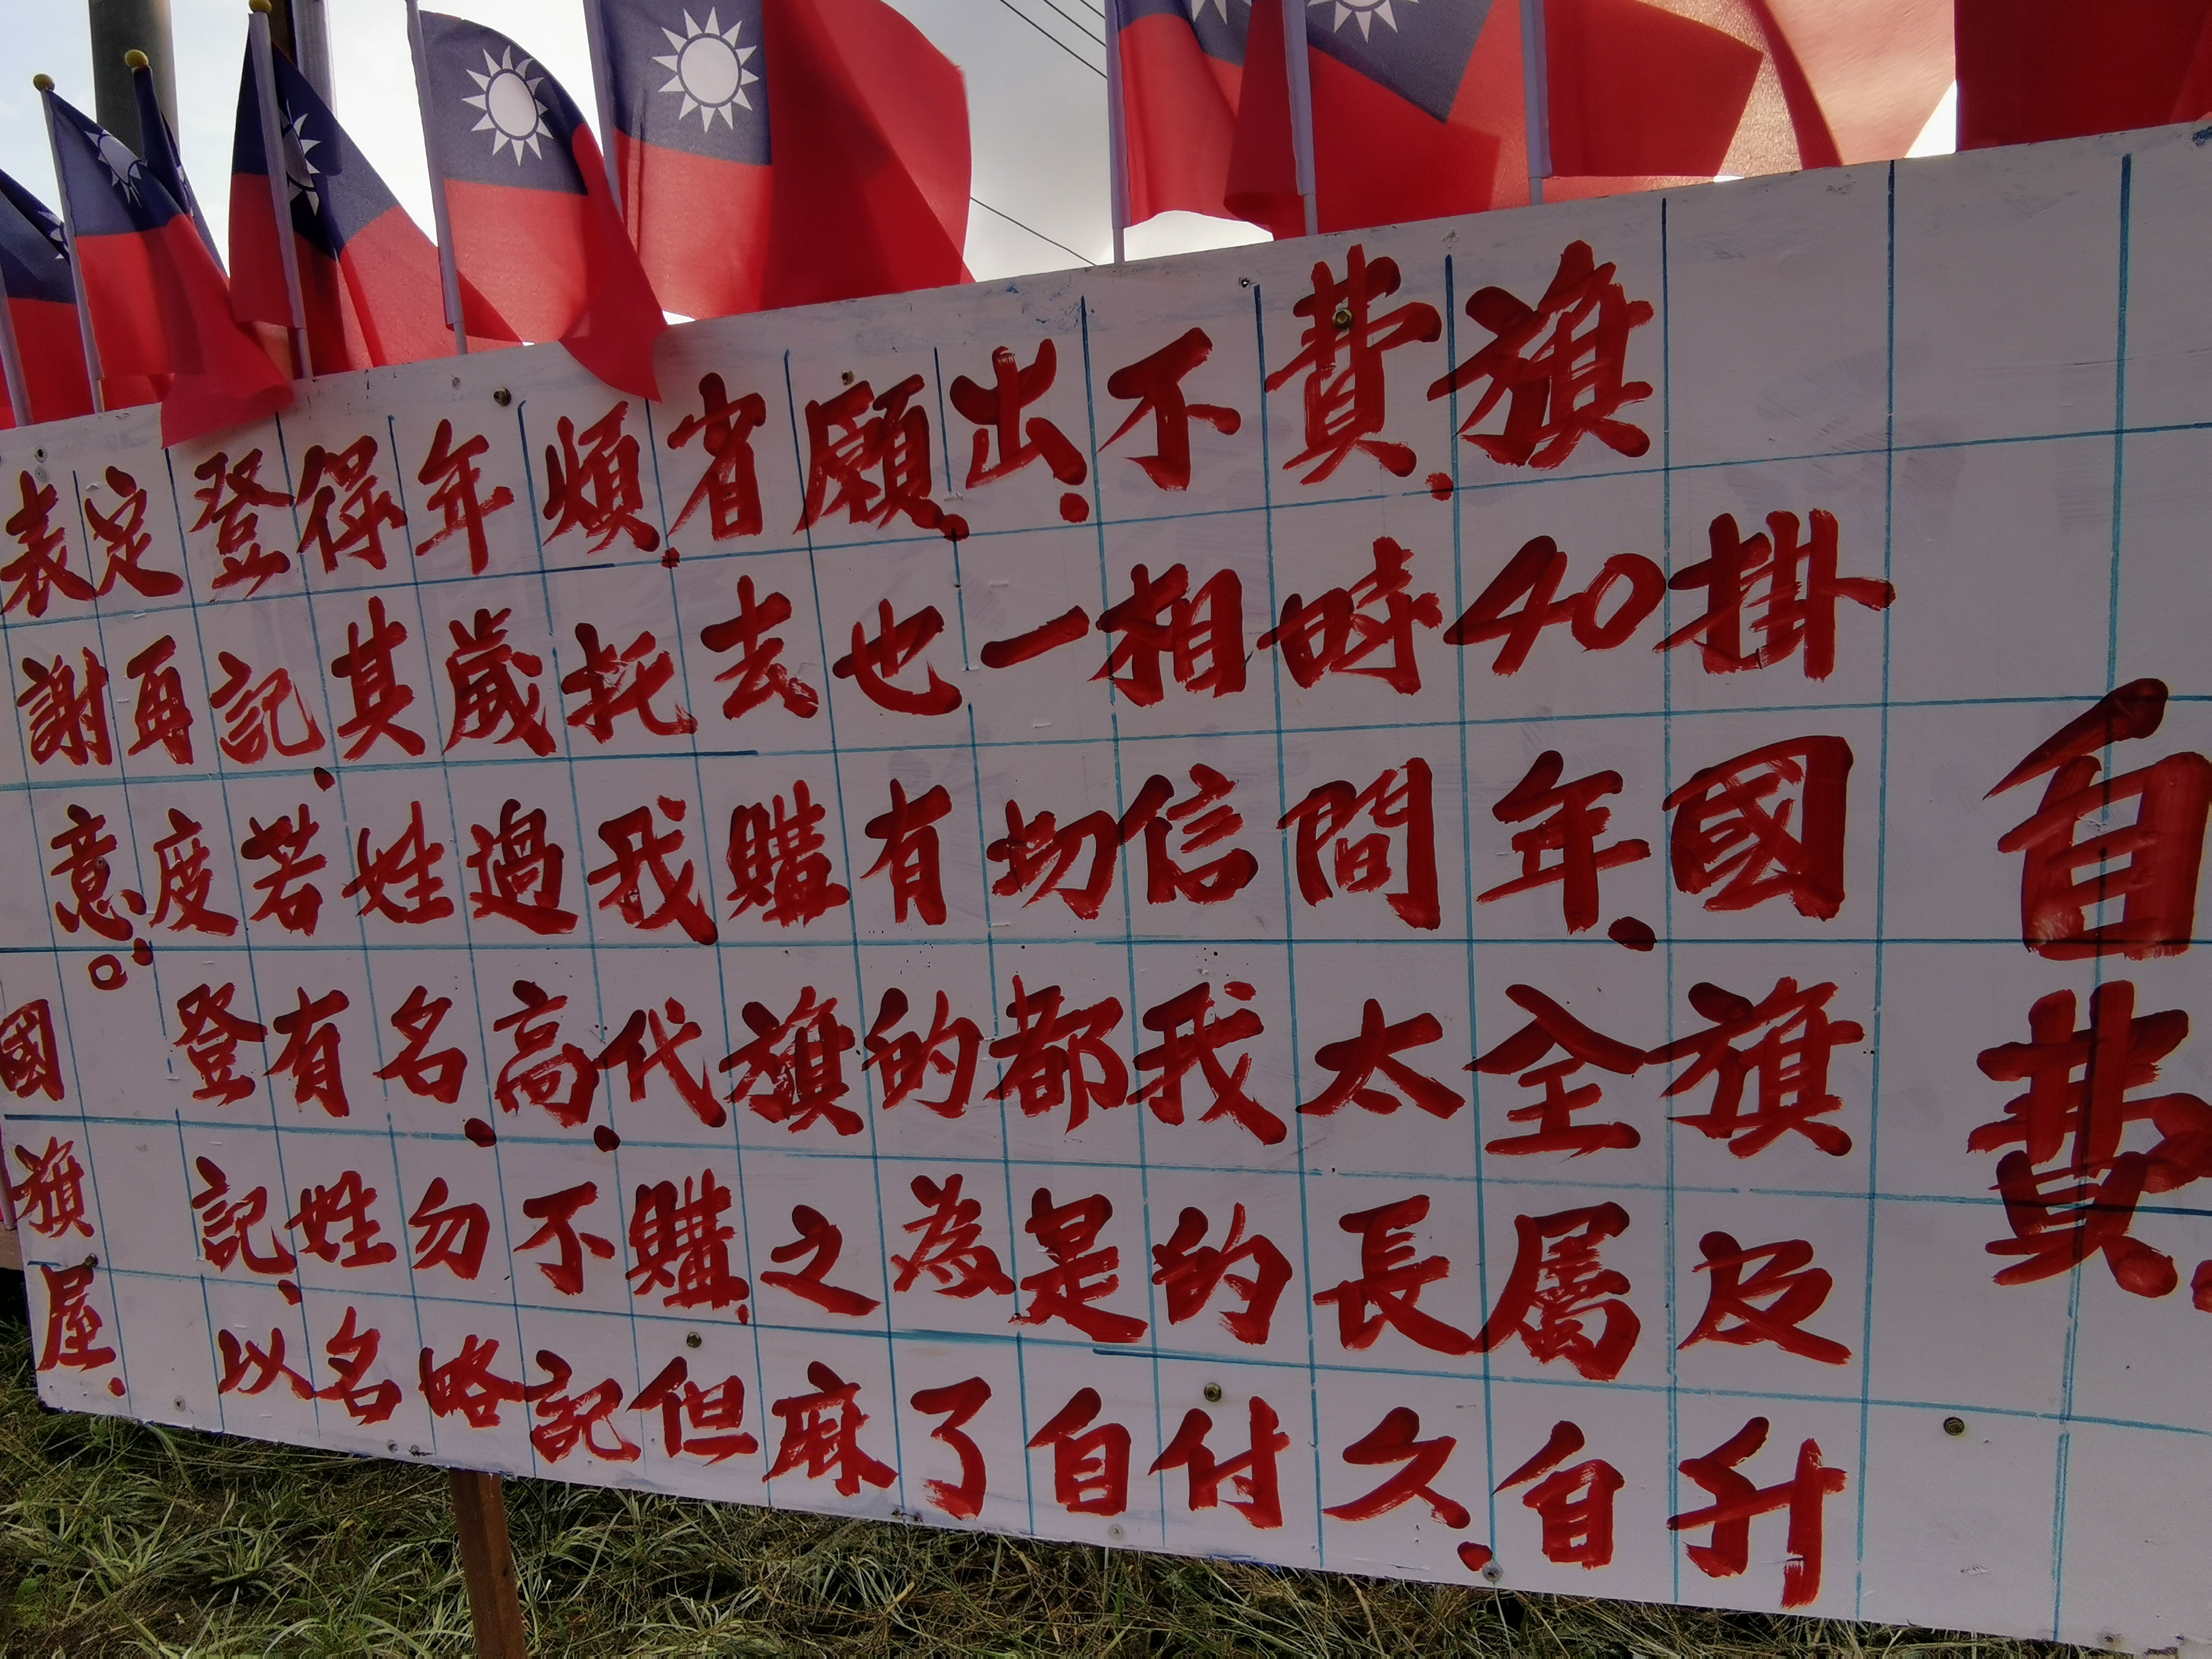 自費、
掛國旗及升
旗40年、全屬自
費、時間太長久、
不相信我的付
出、一切都是自
願、也有的為了
省去購旗之麻
煩、托我代購、但
年歲過高、不記
得其姓名、勿略
登記、若有姓名
定再度登記、以
表謝意。
國旗屋、